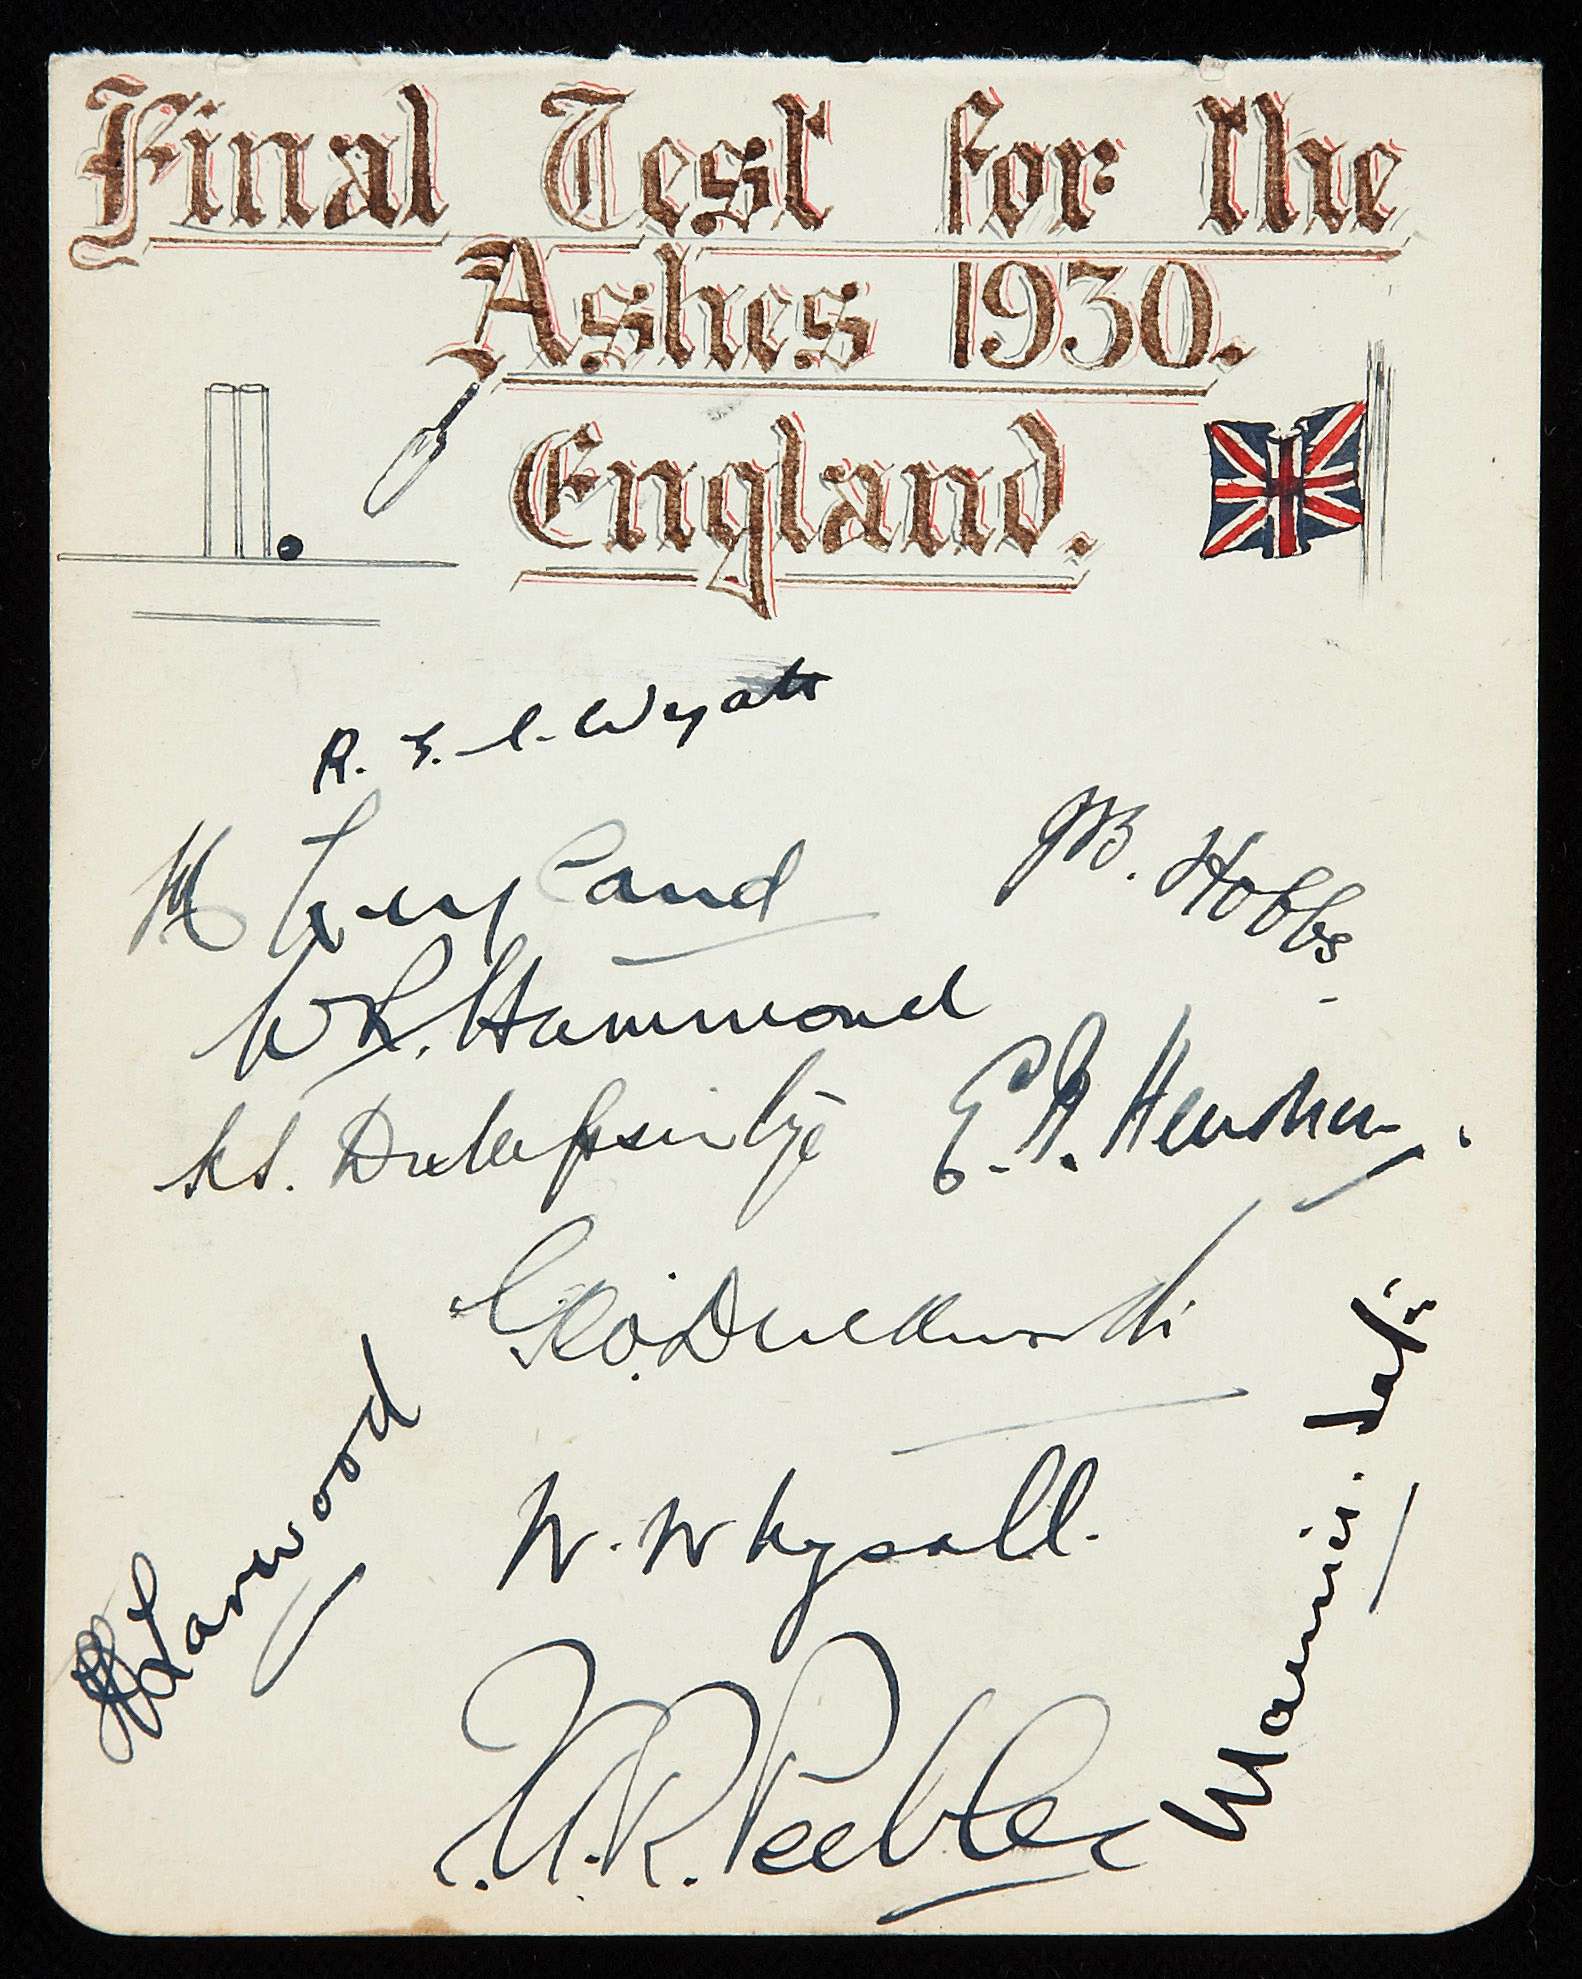 Final Test for the
Ashes 1930.
England.
R. E. S. Wyatt
M Leyland
JB. Hobbs
WR. Hammond
K S. Duleepsinhji
E. H. Hendren
Geo. Duckworth
H Larwood
Maurice. Tate
W. Whysall.
I. A. R. Peebles